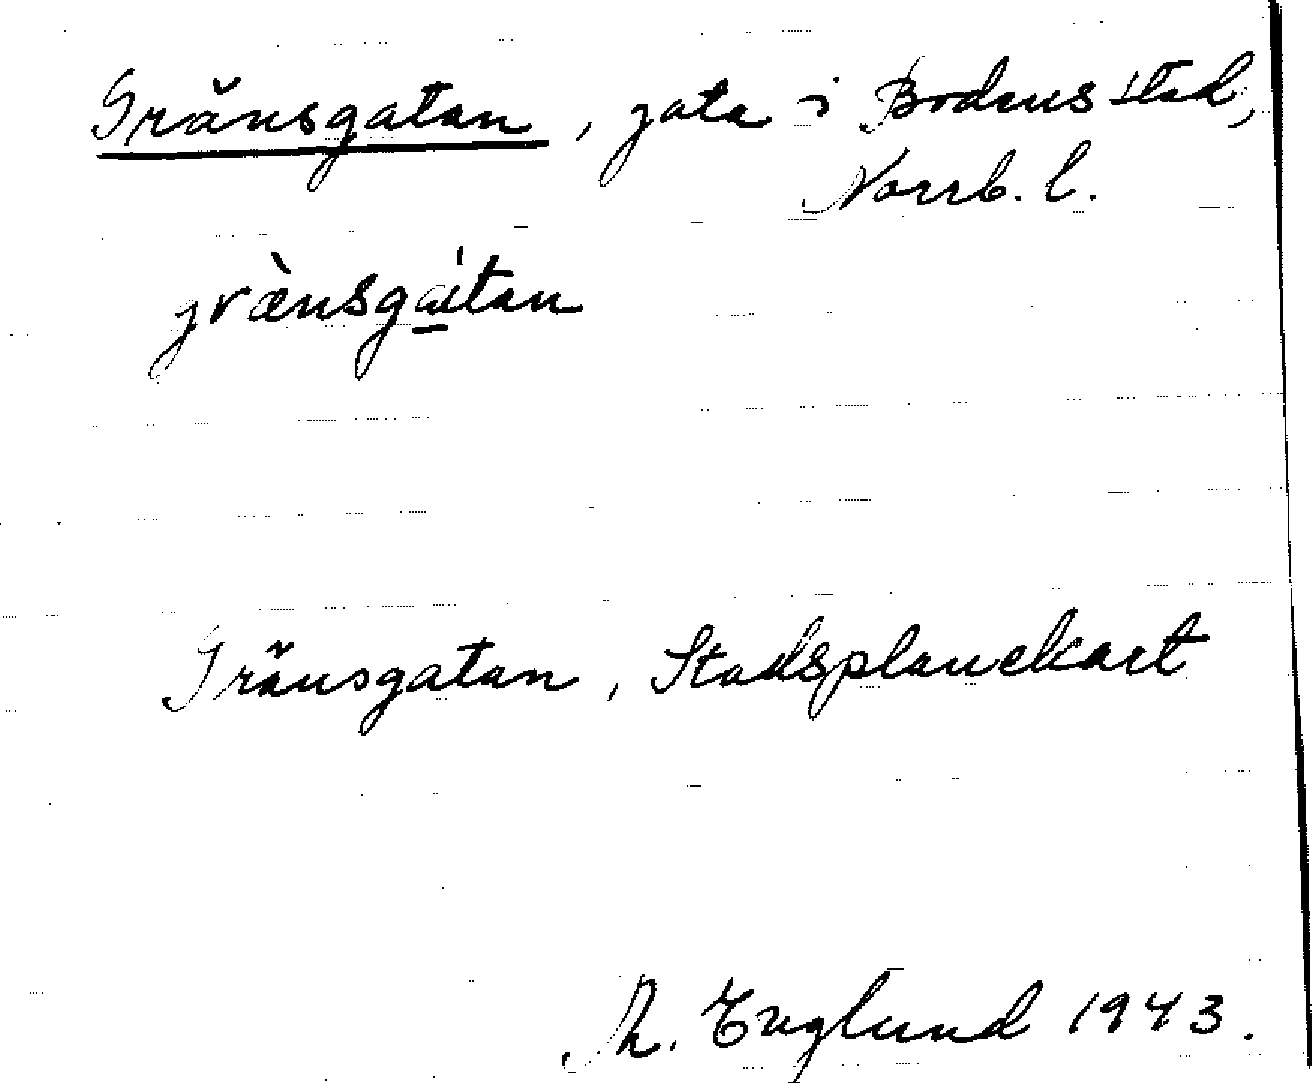 Gränsgatan, gata i Bodens stad,
Norrb. l.
grænsga̲tan
Gränsgatan, Stadsplanekart
M. Englund 1943.